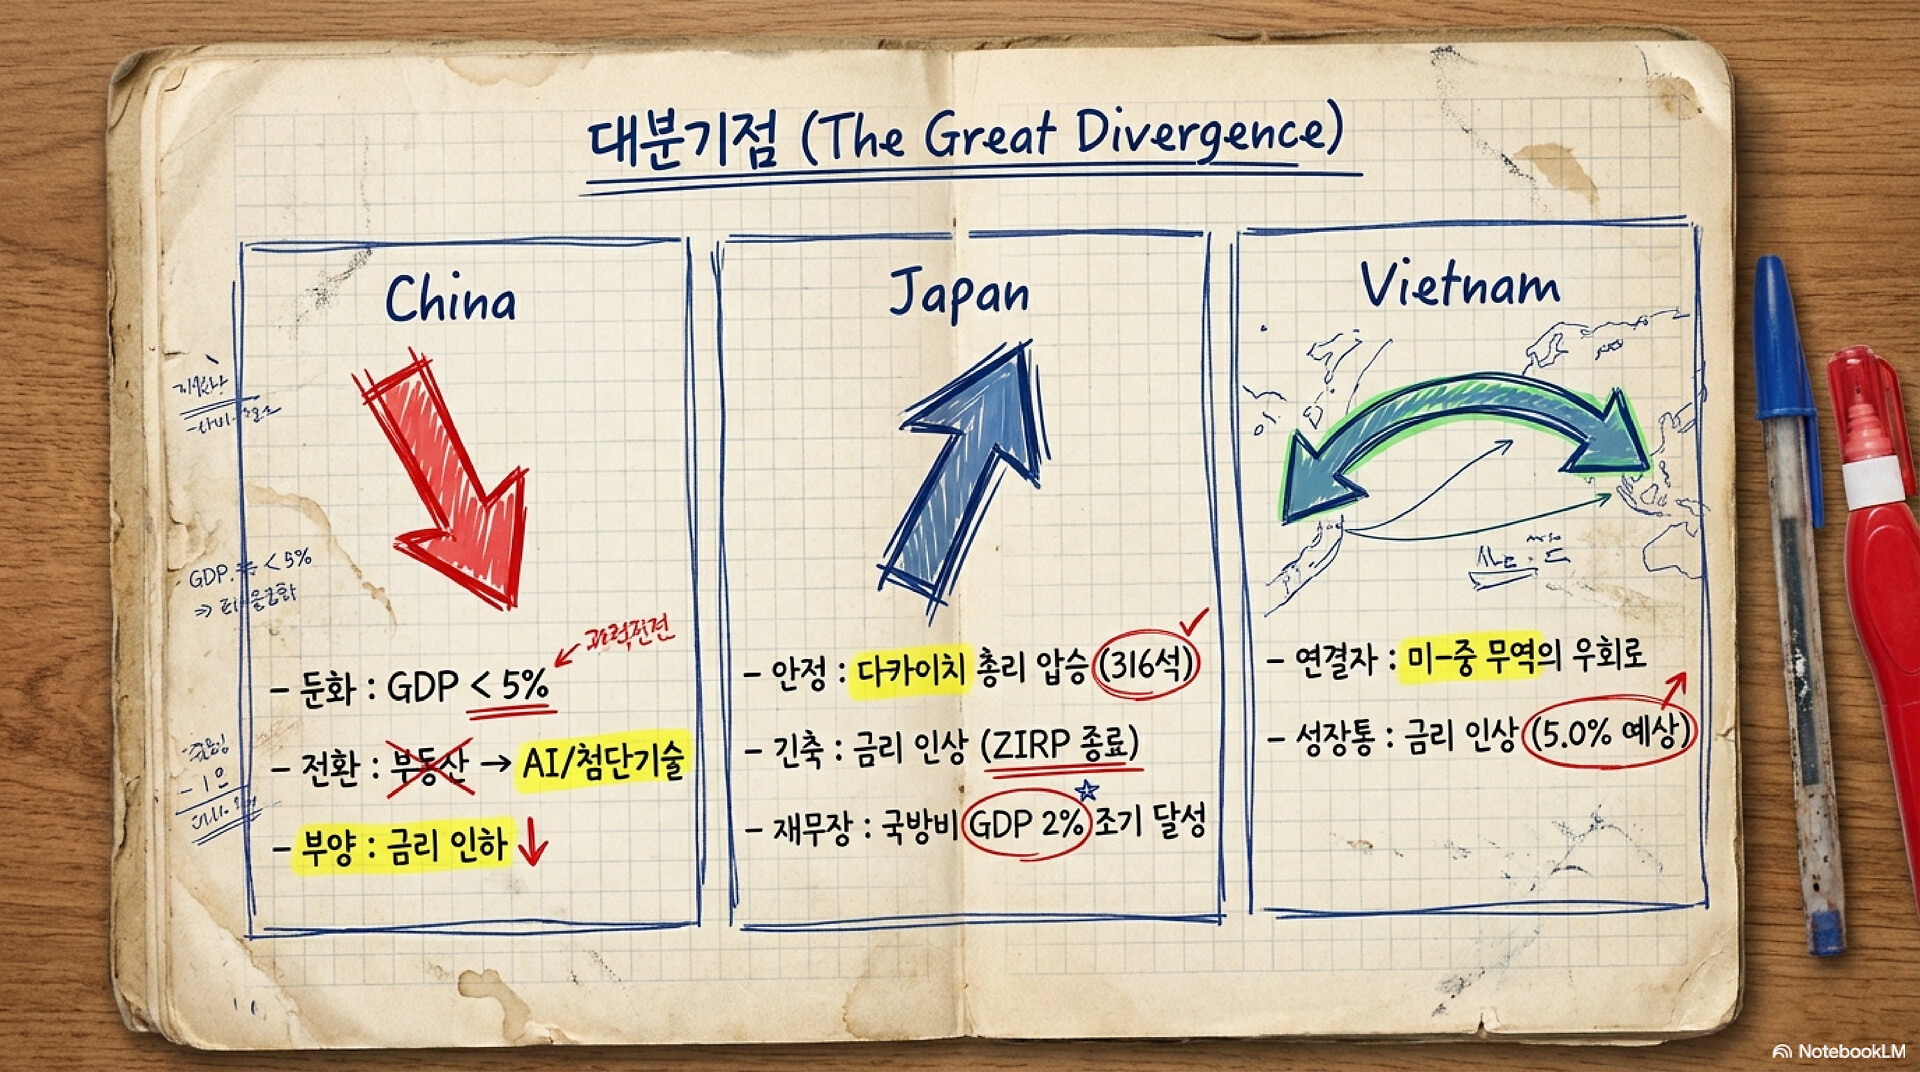 대분기점 (The Great Divergence)
China
- 둔화 : GDP < 5%
- 전환 : 부동산 → AI/첨단기술
- 부양 : 금리 인하 ↓
Japan
- 안정 : 다카이치 총리 압승 (316석)
- 긴축 : 금리 인상 (ZIRP 종료)
- 재무장 : 국방비 GDP 2% 조기 달성
Vietnam
- 연결자 : 미-중 무역의 우회로
- 성장통 : 금리 인상 (5.0% 예상)
GDP < 5%
NotebookLM